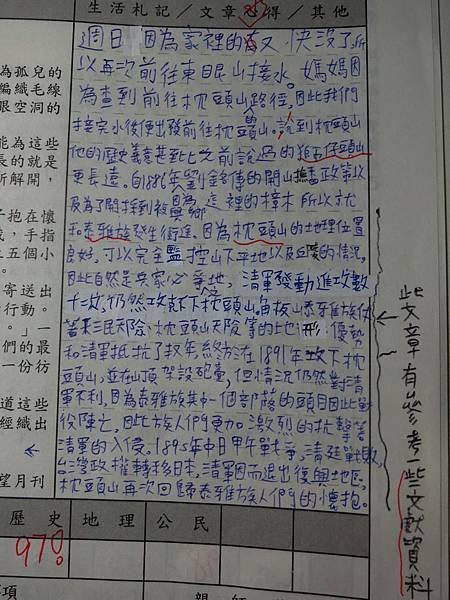 生活札記／文章心得／其他
週日，因為家裡的水又快沒了，所
以再次前往東眼山接水。媽媽因
為查到前往枕頭山路徑，因此我們
接完水後便出發前往枕頭山。說到枕頭山
他的歷史義意甚至比之前說過的獅仔頭山
更長遠。自1886年劉銘傳的開山撫番政策以
及為了開採到被因為這裡的樟木所以就
和泰雅族發生衝途，因為枕頭山的地理位置
良好，可以完全監控山下平地以及丘陵的情況，
因此自然是兵家必爭地，清軍發動進攻數
十次，仍然攻不下枕頭山。角板山泰雅族仗
著天險，枕頭山天險等的土地形優勢
和清軍抵抗了数年終於在1891年攻下枕
頭山，並在山頂架設砲臺，但情況仍然對清
軍不利，因為泰雅族其中一個部落的頭目因此戰
役陣亡，因此族人們更加激烈的抗擊著
清軍的入侵。1895年中日甲午戰爭，清廷戰敗，
台灣政權轉移日本，清軍因而退出後興地區，
枕頭山再次回歸泰雅族人們的懷抱。
此文章有參考一些文獻資料
為孤兒的
編織毛線
眼空洞的
能為這些
長的就是
所解開，
子抱在懷
成，手指
上五個小
寄送出
行動。
」一
們的最
一份彷
道這些
經織出
望月刊
歷史 地理 公民
97!